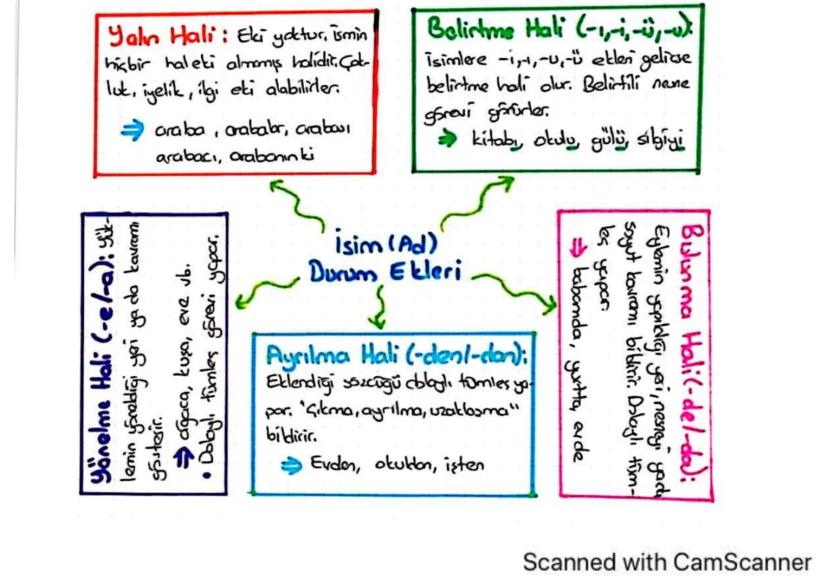 Yalın Hali: Eki yoktur, ismin
hiçbir hal eki almamış halidir. Çok-
luk, iyelik, ilgi eki alabilirler.
⇒ araba, arabalar, arabası
arabacı, arabanınki
Belirtme Hali (-ı,-i,-ü,-u):
isimlere -i,-ı,-u,-ü ekleri gelirse
belirtme hali olur. Belirtili nesne
görevi görürler.
⇒ kitabı, okulu, gülü, silgiyi
İsim (Ad)
Durum Ekleri
Yönelme Hali (-e/-a): Yük-
lemin yöneldiği yeri ya da kavramı
gösterir.
⇒ ağaca, kuşa, eve vb.
• Dolaylı tümleç görevi yapar.
Ayrılma Hali (-den/-dan):
Eklendiği sözcüğü dolaylı tümleç ya-
par. "Çıkma, ayrılma, uzaklaşma"
bildirir.
⇒ Evden, okuldan, işten
Bulunma Hali (-de/-da):
Eylemin yapıldığı yeri, nereyi yada
soyut kavramı bildirir. Dolaylı tüm-
leç yapar.
⇒ babamda, yurtta, evde
Scanned with CamScanner